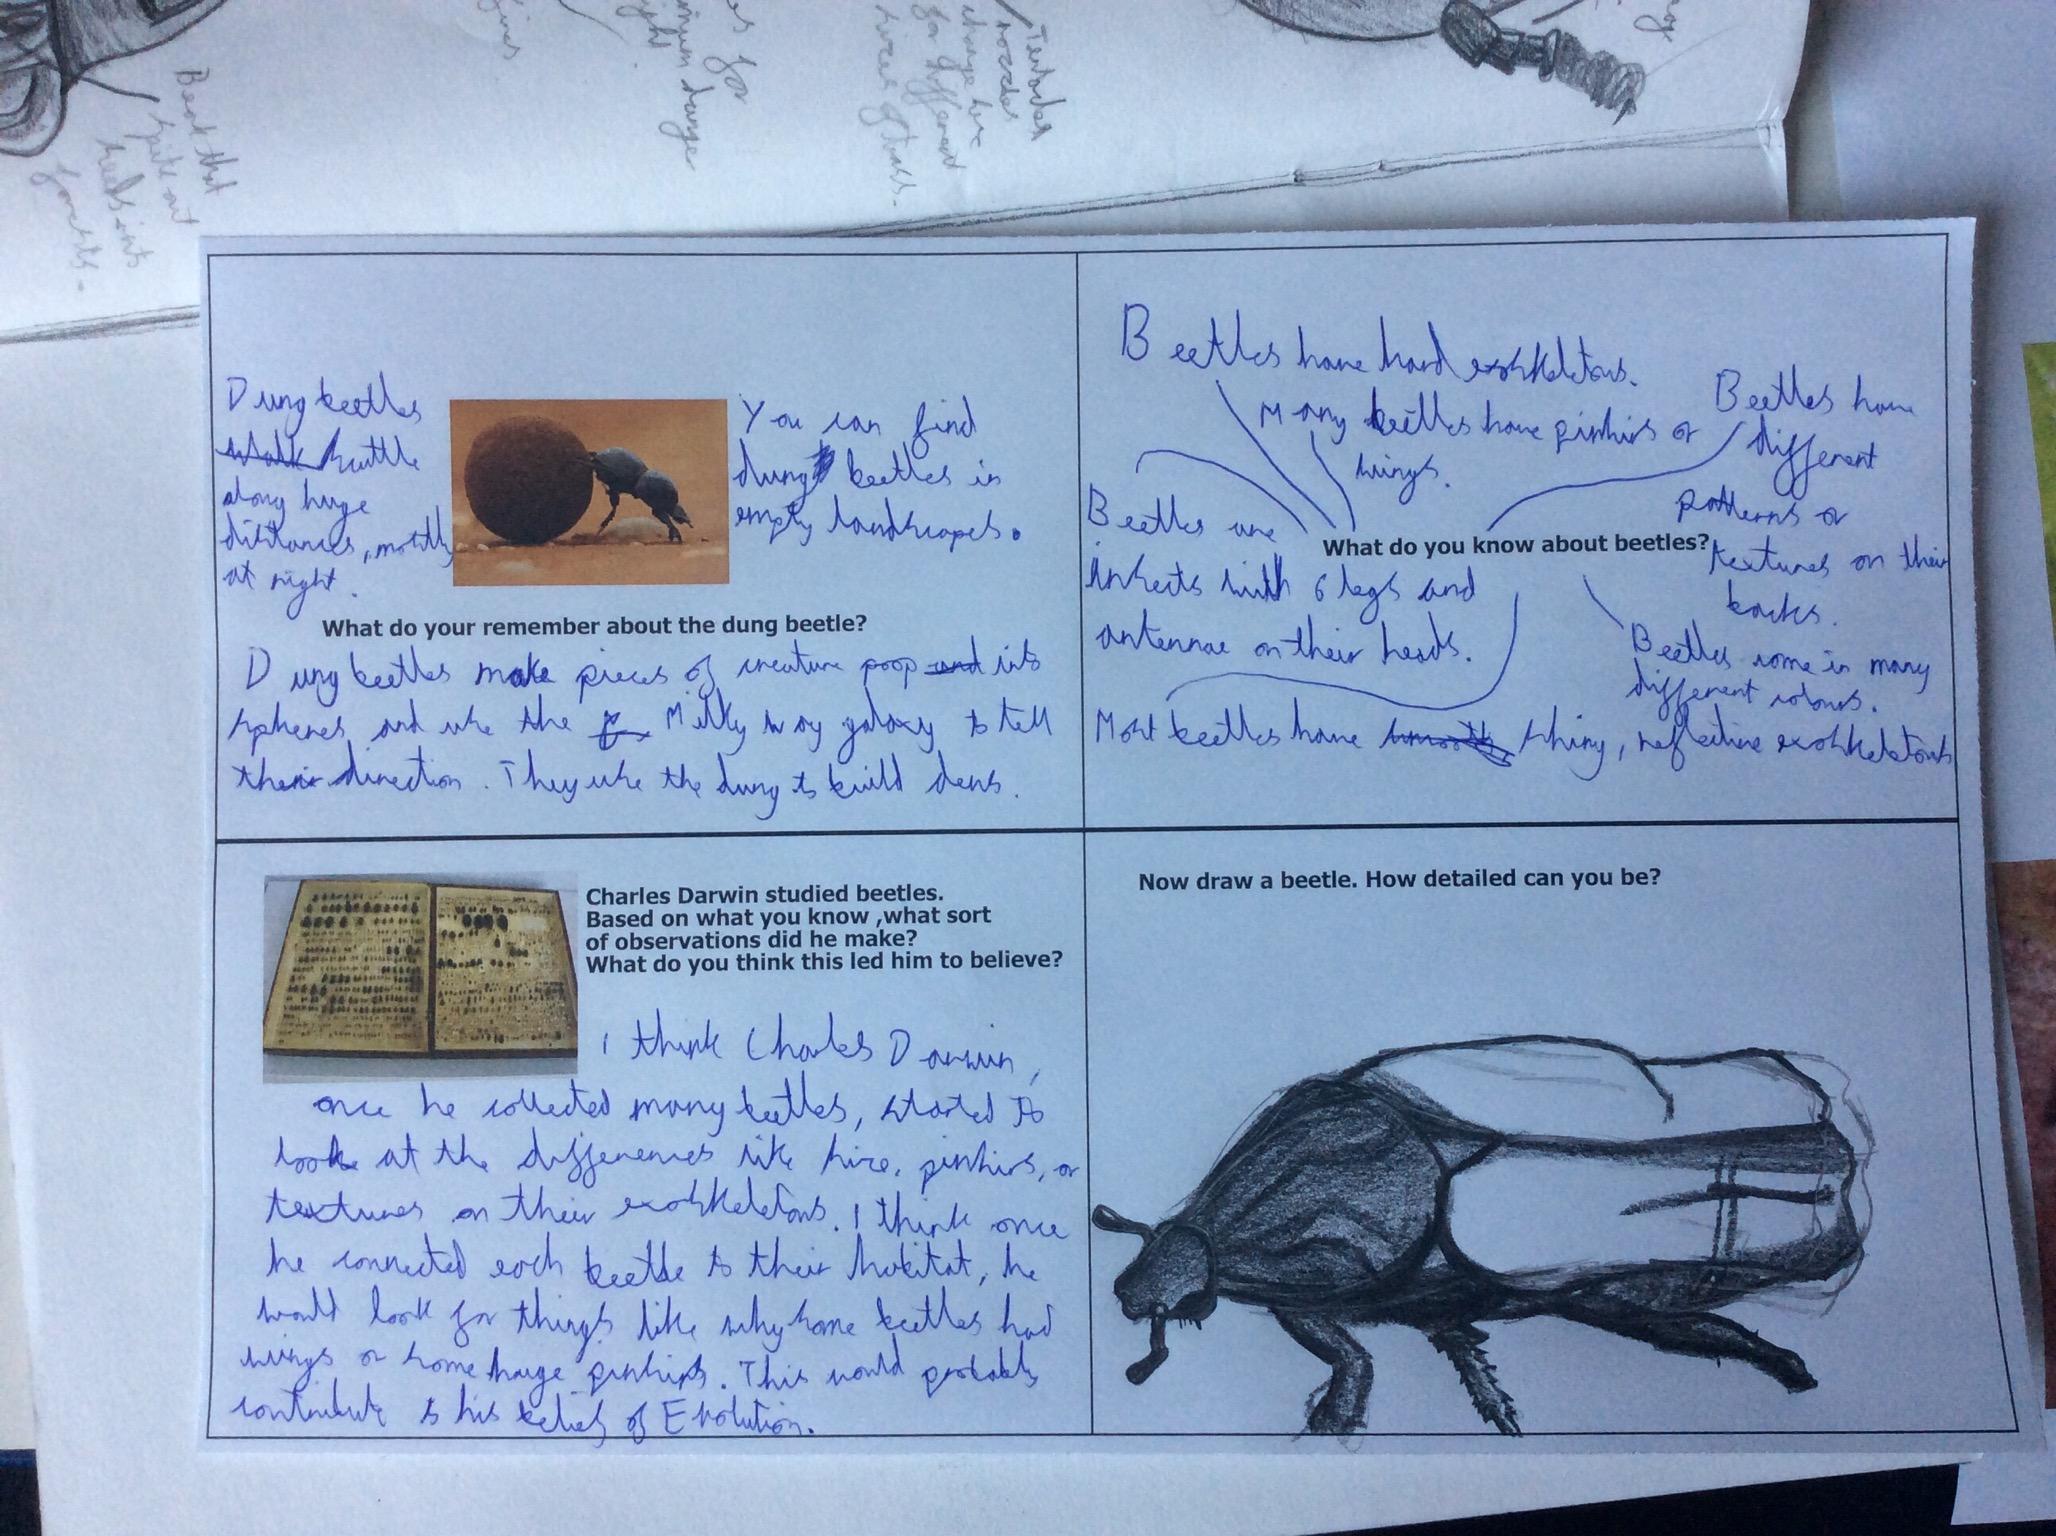 Beast that
spits out
seeds into
forests.
for
danger
Tentacles
change
for different
Dung beetles
walk scuttle
along huge
distances, mostly
at night.
You can find
dung beetles in
empty landscapes.
What do your remember about the dung beetle?
Dung beetles make pieces of creature poop and into
spheres and use the Milky way galaxy to tell
their direction. They use the dung to build dens.
Beetles have hard exoskeletons.
Many beetles have pinhirs or
wings.
Beetles have
different
patterns or
textures on their
backs.
Beetles are
insects with 6 legs and
antennae on their heads.
What do you know about beetles?
Beetles come in many
different colours.
Most beetles have smooth shiny, reflective exoskeletons
Charles Darwin studied beetles.
Based on what you know ,what sort
of observations did he make?
What do you think this led him to believe?
I think Charles Darwin,
once he collected many beetles, started to
look at the differences like size, pinhirs, or
textures on their exoskeletons. I think once
he connected each beetle to their habitat, he
would look for things like why some beetles had
wings or some huge pinhirs. This would probably
contribute to his belief of Evolution.
Now draw a beetle. How detailed can you be?